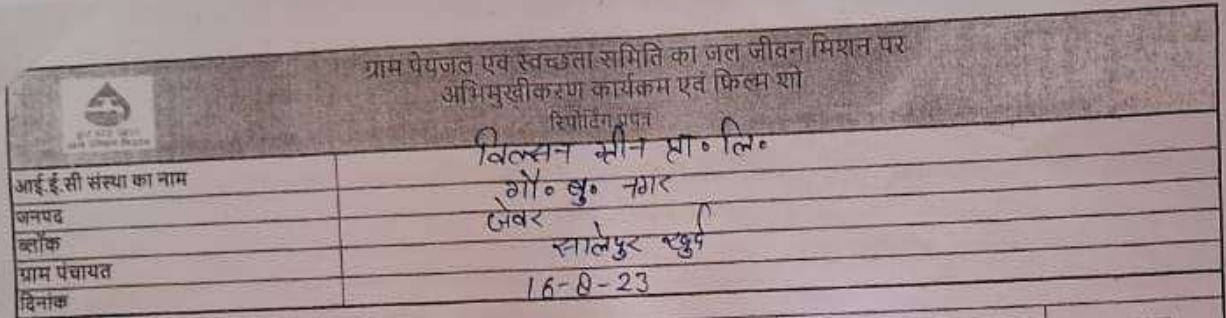 ग्राम पेयजल एवं स्वच्छता समिति का जल जीवन मिशन पर
अभिमुखीकरण कार्यक्रम एवं फिल्म शो
रिपोर्टिंग प्रपत्र
हर घर जल
जल जीवन मिशन
आई.ई.सी संस्था का नाम विल्सन ग्रीन प्रा॰ लि॰
जनपद गौ॰ बु॰ नगर
ब्लॉक जेवर
ग्राम पंचायत सालेपुर खुर्द
दिनांक 16-8-23